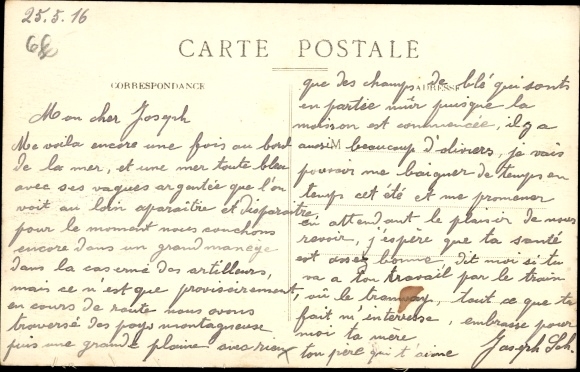 25.5.16
68
CARTE POSTALE
CORRESPONDANCE
ADRESSE
M
Mon cher Joseph
Me voila encore une fois au bord
de la mer, et une mer toute bleu
avec ses vagues argentée que l'on
voit au loin aparaitre et disparaitre,
pour le moment nous couchons
encore dans un grand manège
dans la caserne des artilleurs,
mais ce n'est que provisoirement,
en cours de route nous avons
traversé des pays montagneuse
puis une grande plaine avec rien
que des champs de blé qui sont
en partie mûr puisque la
moison est commencée, il y a
aussi beaucoup d'oliviers, je vais
pouvoir me baigner de temps en
temps cet été et me promener
en attendant le plaisir de nous
revoir, j'espère que ta santé
est assez bonne, dit moi si tu
va a ton travail par le train
où le tramway, tout ce que tu
fait m'interesse, embrasse pour
moi ta mère
ton père qui t'aime Joseph Sch.